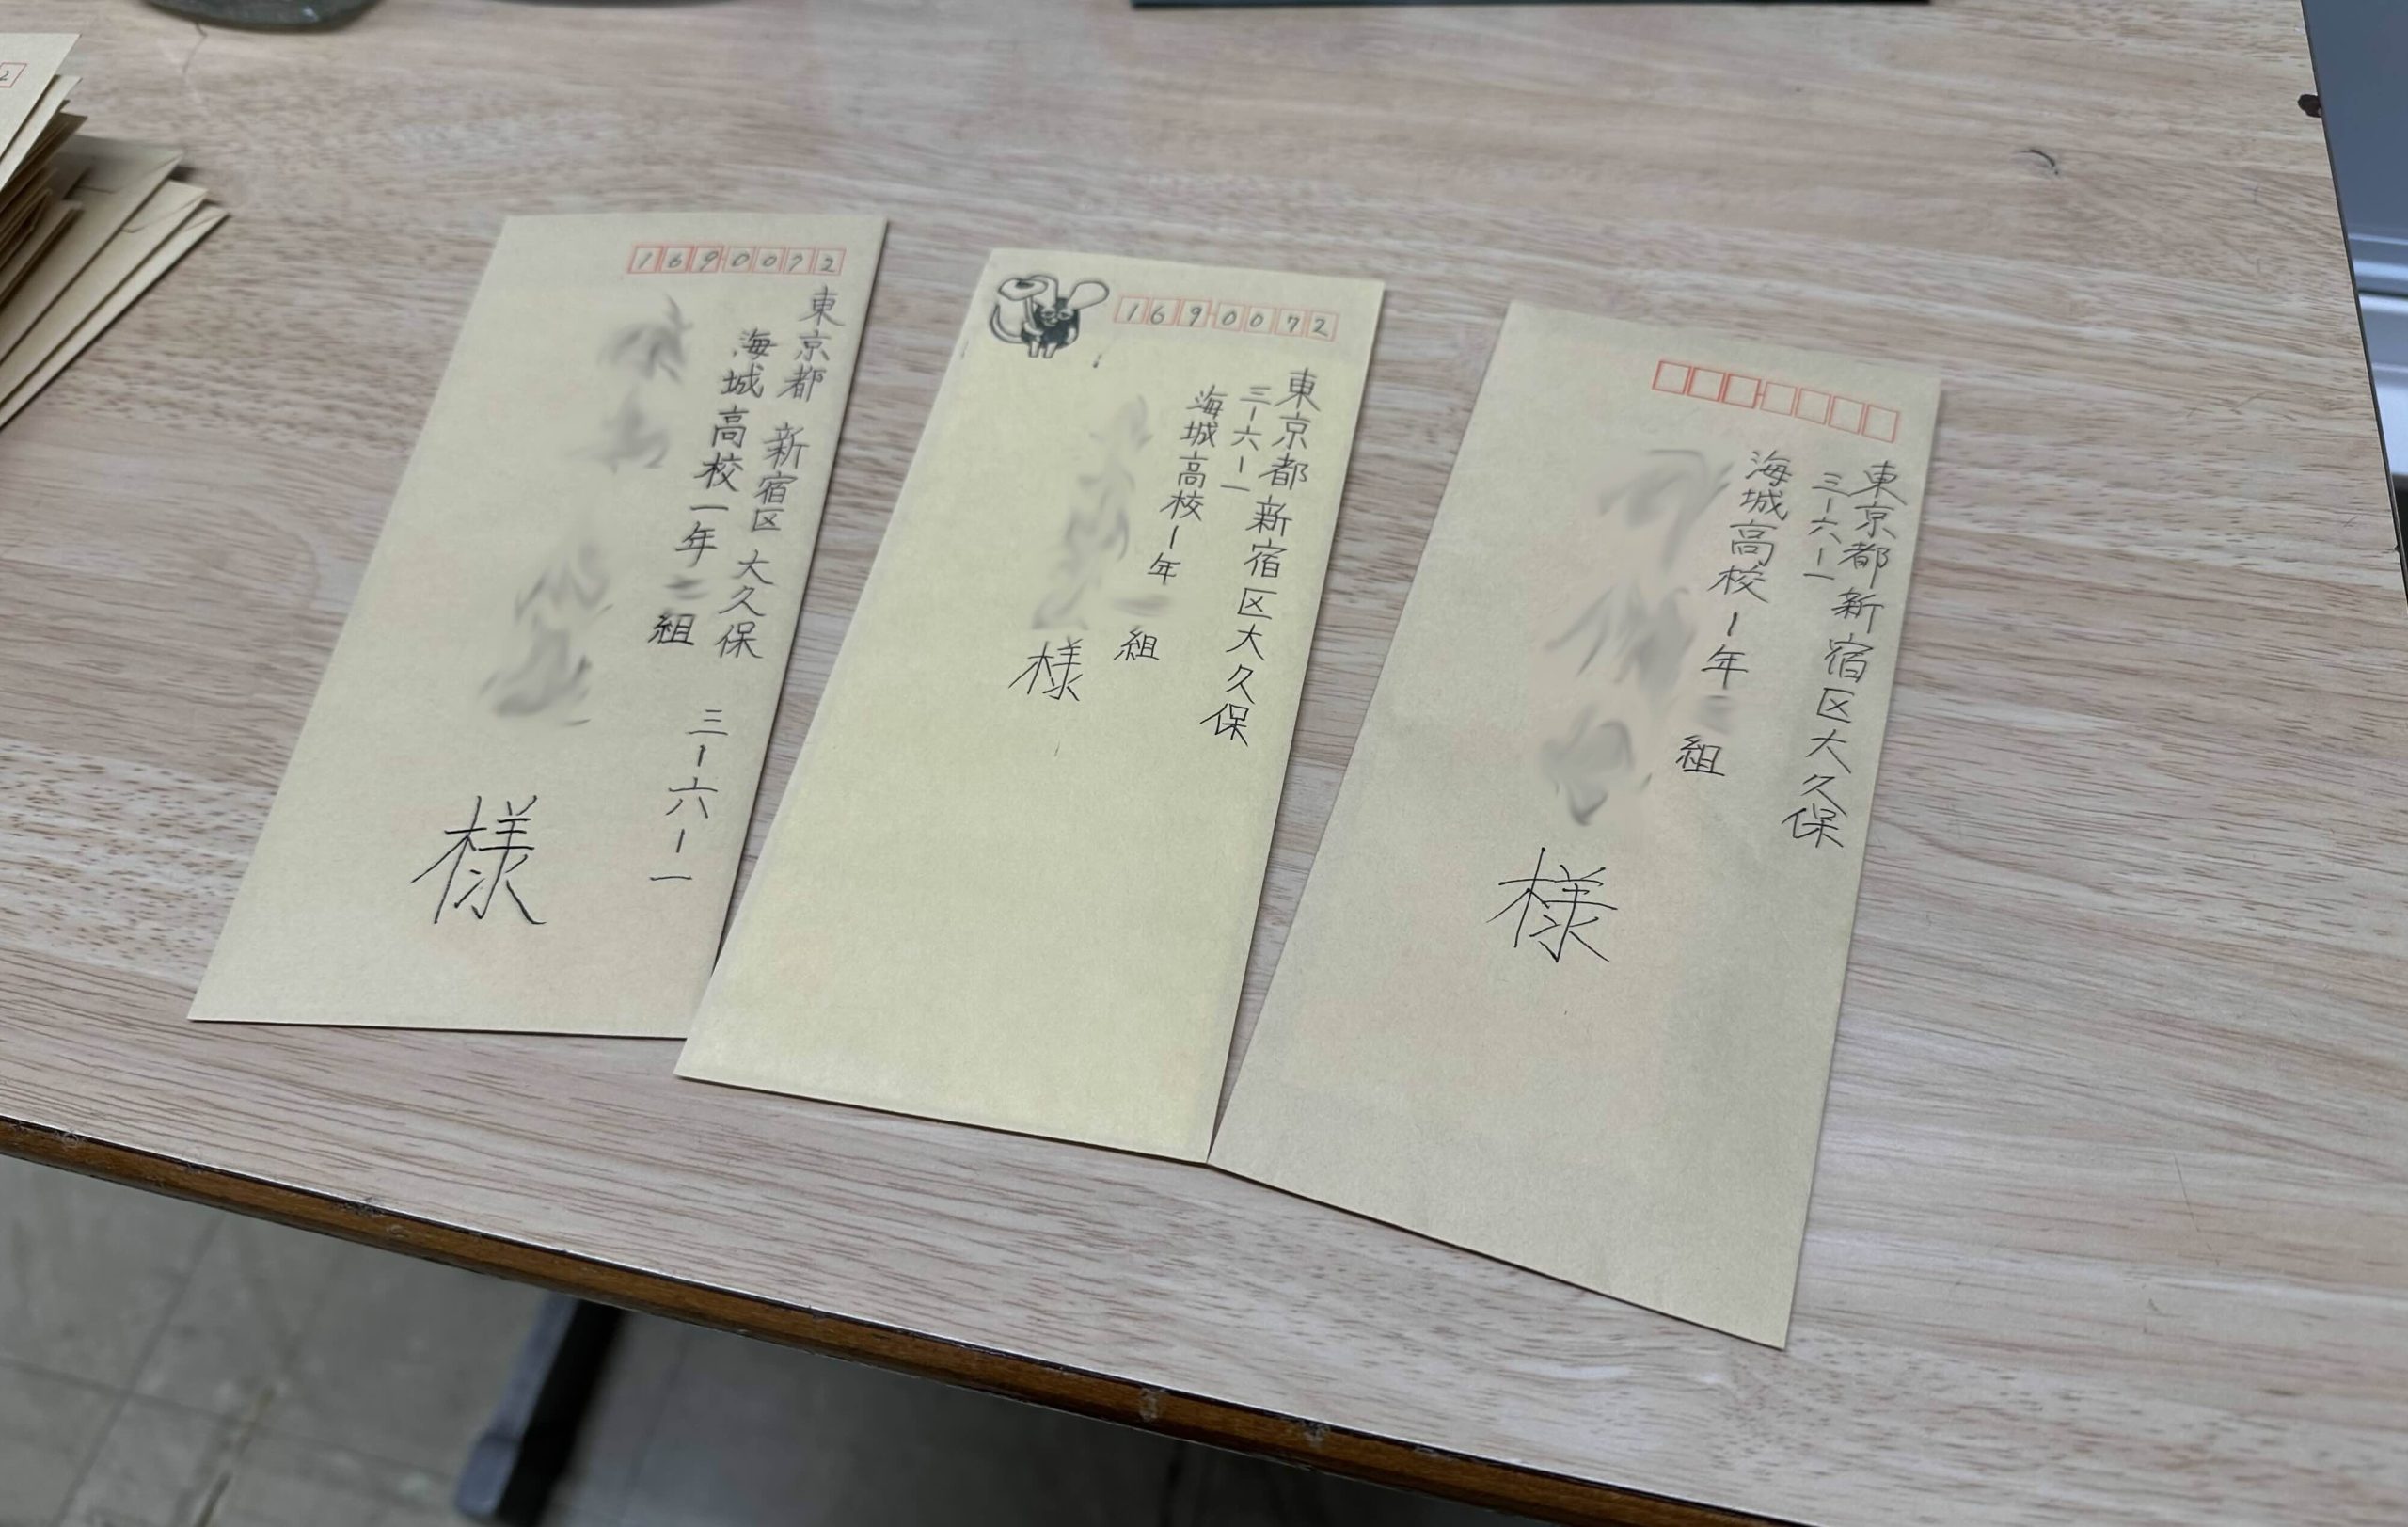 1690072
東京都 新宿区 大久保 三-六-一
海城高校一年 組
様
1690072
東京都新宿区大久保
三-六-一
海城高校1年 組
様
東京都新宿区大久保
三-六-一
海城高校1年 組
様
2